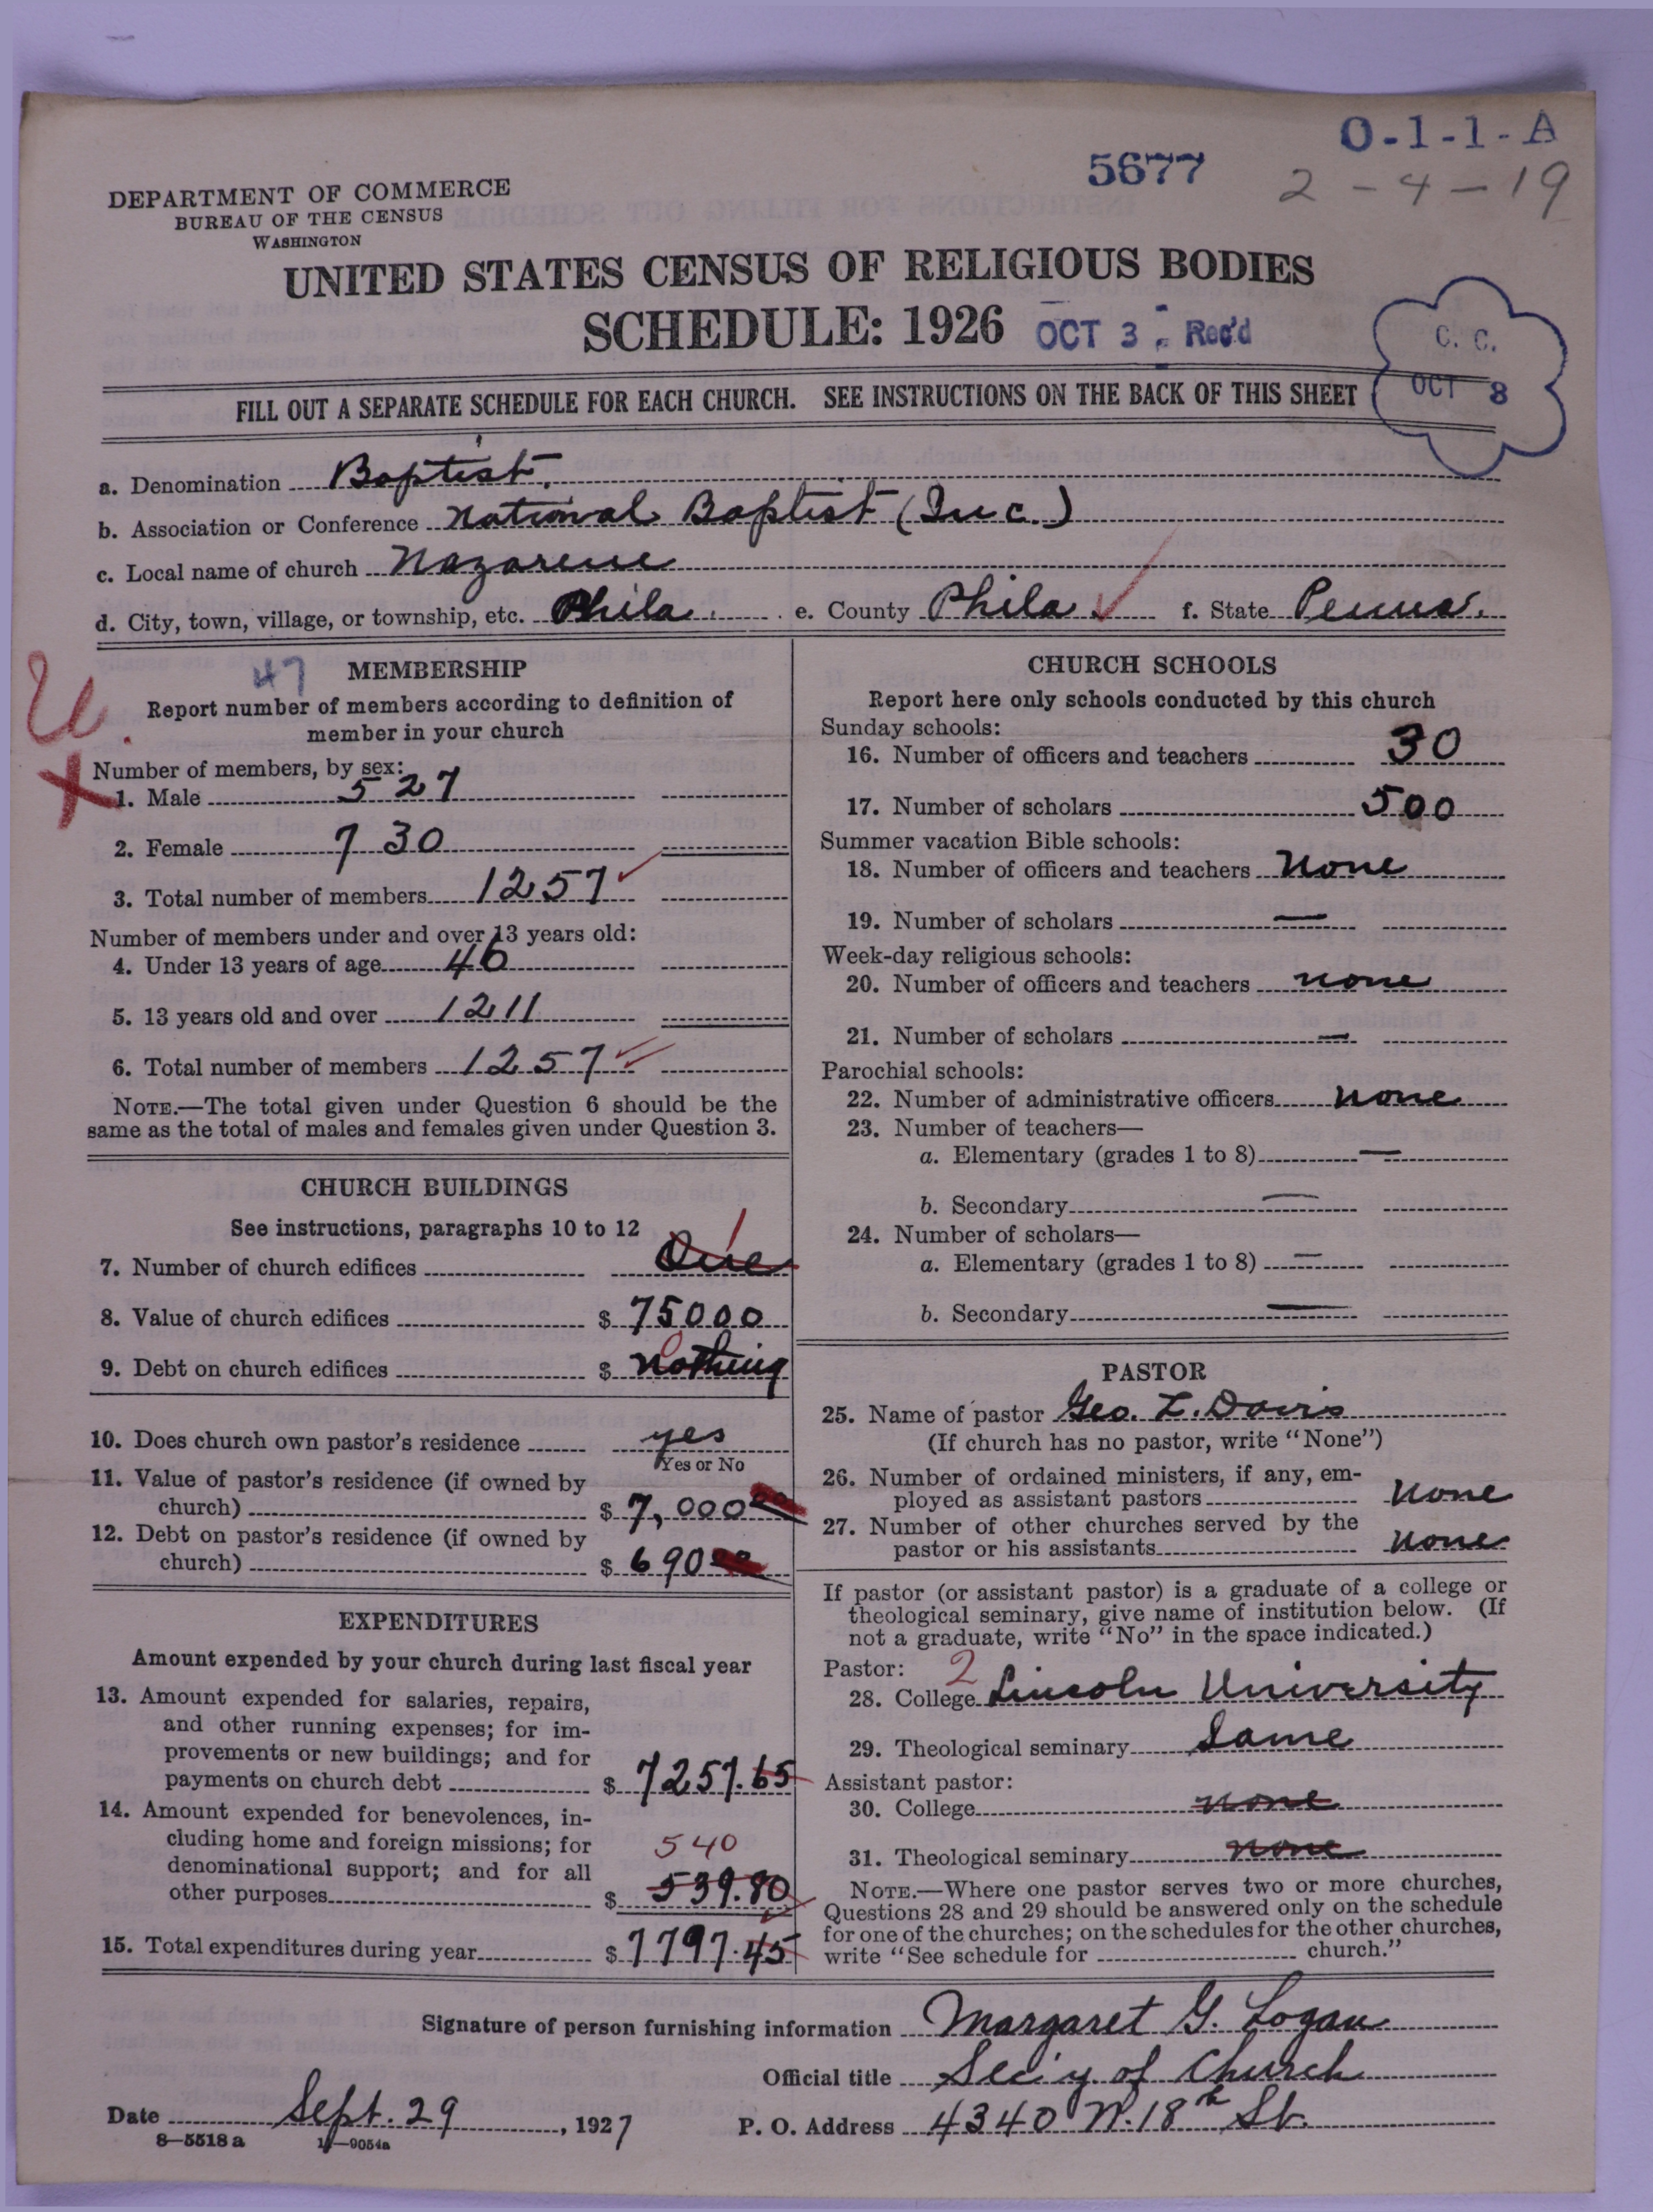 O-1-1-A
5677
2-4-19
DEPARTMENT OF COMMERCE
BUREAU OF THE CENSUS
WASHINGTON
UNITED STATES CENSUS OF RELIGIOUS BODIES
SCHEDULE: 1926 OCT 3 Rec'd
C. C.
OCT 8
FILL OUT A SEPARATE SCHEDULE FOR EACH CHURCH. SEE INSTRUCTIONS ON THE BACK OF THIS SHEET
a. Denomination Baptist.
b. Association or Conference National Baptist (Inc.)
c. Local name of church Nazarene
d. City, town, village, or township, etc. Phila. e. County Phila f. State Penna.
47 MEMBERSHIP
Report number of members according to definition of
member in your church
Number of members, by sex:
X
1. Male 527
2. Female 730
3. Total number of members 1257
Number of members under and over 13 years old:
4. Under 13 years of age 46
5. 13 years old and over 1211
6. Total number of members 1257
NOTE.—The total given under Question 6 should be the
same as the total of males and females given under Question 3.
CHURCH BUILDINGS
See instructions, paragraphs 10 to 12
1
7. Number of church edifices One
8. Value of church edifices $ 75000
0
9. Debt on church edifices $ Nothing
10. Does church own pastor's residence yes
Yes or No
11. Value of pastor's residence (if owned by
church) $ 7,000 00
12. Debt on pastor's residence (if owned by
church) $ 690 00
EXPENDITURES
Amount expended by your church during last fiscal year
13. Amount expended for salaries, repairs,
and other running expenses; for im-
provements or new buildings; and for
payments on church debt $ 7257.65
14. Amount expended for benevolences, in-
cluding home and foreign missions; for 540
denominational support; and for all
other purposes $ 539.80
15. Total expenditures during year $ 7797.45
CHURCH SCHOOLS
Report here only schools conducted by this church
Sunday schools:
16. Number of officers and teachers 30
17. Number of scholars 500
Summer vacation Bible schools:
18. Number of officers and teachers None
19. Number of scholars —
Week-day religious schools:
20. Number of officers and teachers none
21. Number of scholars —
Parochial schools:
22. Number of administrative officers none
23. Number of teachers—
a. Elementary (grades 1 to 8) —
b. Secondary —
24. Number of scholars—
a. Elementary (grades 1 to 8) —
b. Secondary —
PASTOR
25. Name of pastor Geo. L. Davis
(If church has no pastor, write "None")
26. Number of ordained ministers, if any, em-
ployed as assistant pastors None
27. Number of other churches served by the
pastor or his assistants None
If pastor (or assistant pastor) is a graduate of a college or
theological seminary, give name of institution below. (If
not a graduate, write "No" in the space indicated.)
Pastor: 2
28. College Lincoln University
29. Theological seminary Same
Assistant pastor:
30. College none
31. Theological seminary none
NOTE.—Where one pastor serves two or more churches,
Questions 28 and 29 should be answered only on the schedule
for one of the churches; on the schedules for the other churches,
write "See schedule for church."
Signature of person furnishing information Margaret G. Logan
Official title Sec'y of Church
Date Sept. 29, 1927 P. O. Address 4340 N. 18th St.
8—5518a